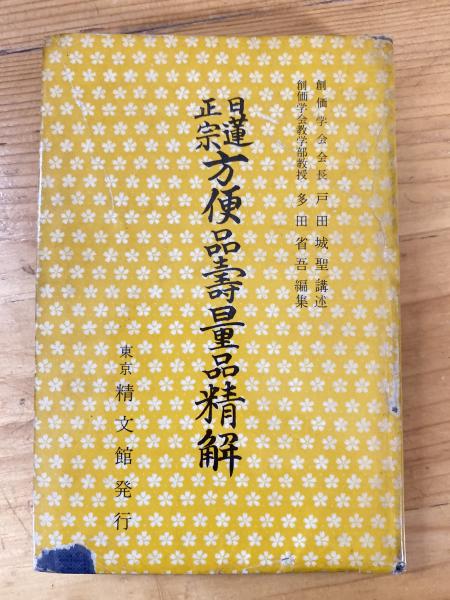 創価学会会長 戸田城聖講述
創価学会教学部教授 多田省吾編集
日蓮正宗 方便品壽量品精解
東京 精文館発行